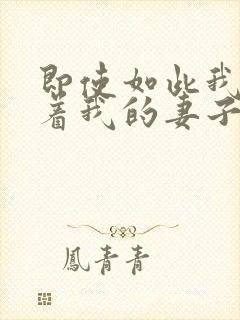 即使如此我
着我的妻子
鳳青青